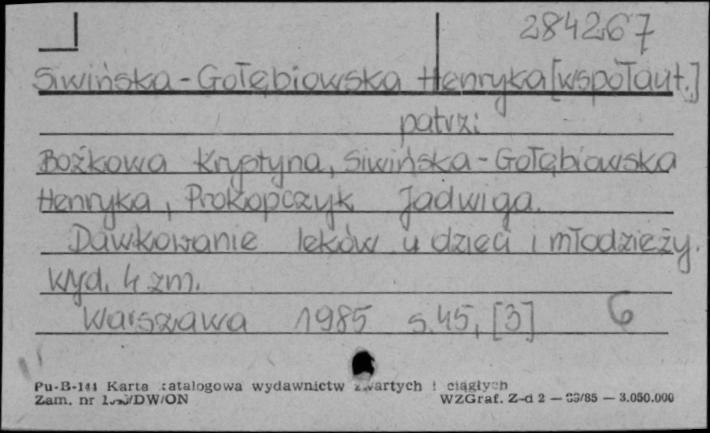 284267
Siwińska-Gołębiowska Henryka [współaut.]
patrz:
Bożkowa Krystyna, Siwińska-Gołąbiowska
Henryka, Prokopczyk Jadwiga.
Dawkowanie leków u dzieci i młodzieży.
Wyd. 4 zm.
Warszawa 1985 s.45, [3] 6
Pu-B-141 Karta katalogowa wydawnictw zwartych i ciągłych
Zam. nr WZGraf. Z-d 2 — 3.050.000